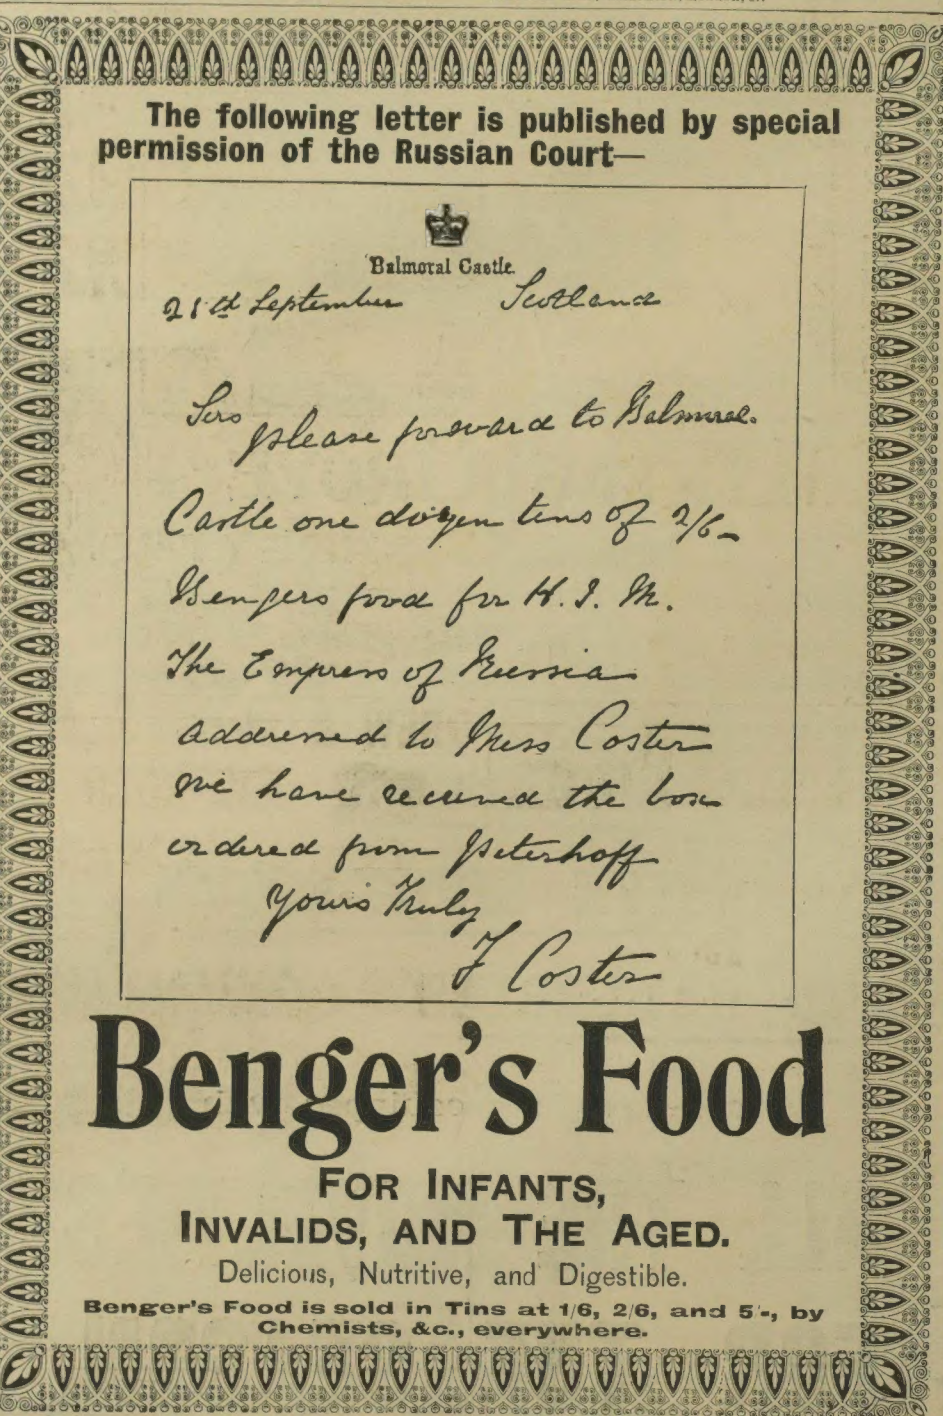 The following letter is published by special
permission of the Russian Court—
Balmoral Castle.
Scotland
September
Sirs
please forward to Balmoral.
Castle one dozen tins of 2/6-
Bengers food for H. I. M.
The Empress of Russia
addressed to Miss Coster
we have received the box
ordered from Peterhoff
Yours Truly
F Coster
Benger's Food
FOR INFANTS,
INVALIDS, AND THE AGED.
Delicious, Nutritive, and Digestible.
Benger's Food is sold in Tins at 1/6, 2/6, and 5/-, by
Chemists, &c., everywhere.